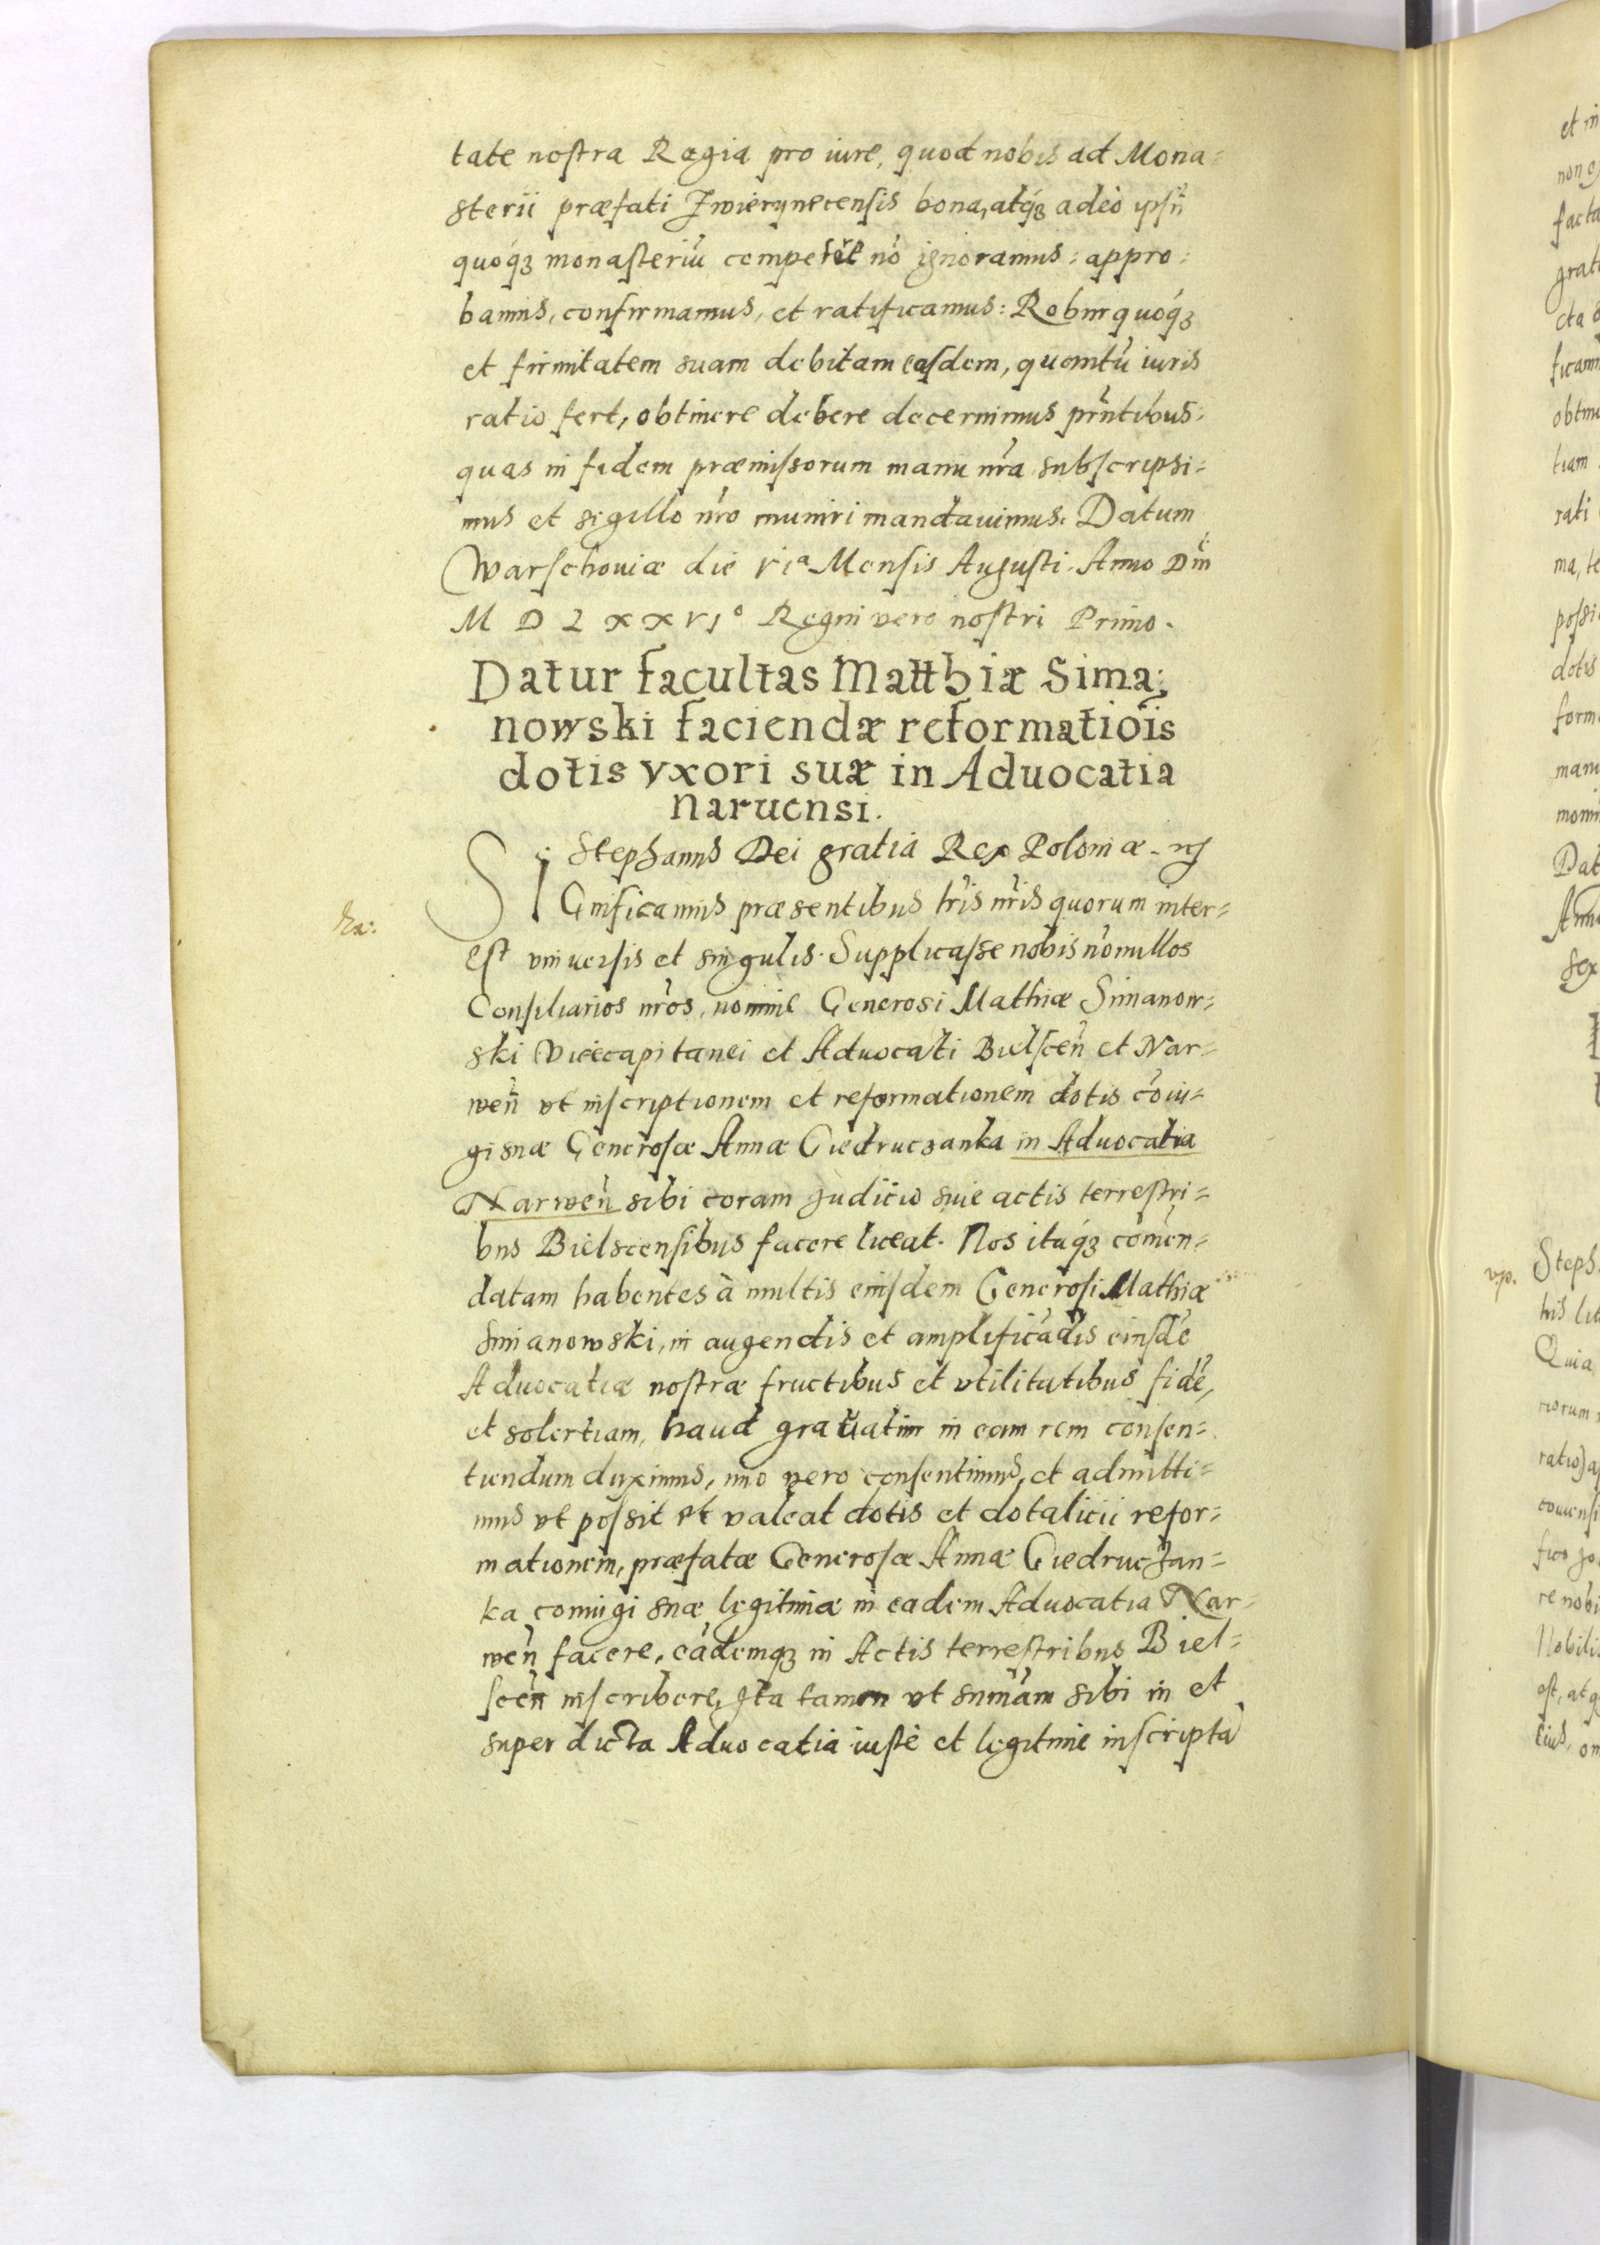 tate nostra Regia pro iure, quod nobis ad Mona=
sterii præfati Zwierynecensis bona, atq́ꝫ adeò ipsū
quoq́ꝫ monasteriū competere nō ignoramus: appro=
bamus, confirmamus, et ratificamus: Robur quoq́ꝫ
et firmitatem suam debitam easdem, quantū iuris
ratio fert, obtinere debere decernimus prn̄tibus:
quas in fidem præmissorum manu nr̄a subscripsi=
mus et sigillo nr̄o muniri mandauimus. Datum
Warschouiæ die VIª Mensis Augusti. Anno Dn̄i
M D L x x VI° Regni vero nostri Primo.
Datur facultas Matthiæ Sima=
nowski faciendæ reformatiōis
dotis vxori suæ in Aduocatia
Naruensi.
Stephanus Dei gratia Rex Poloniæ
SIGnificamus præsentibus lr̄is nr̄is quorum inter=
est vniuersis et singulis. Supplicasse nobis nōnullos
Consiliarios nr̄os, nomine Generosi Mathiæ Simanow=
ski Vicecapitanei et Aduocati Bielscen̄ et Nar=
wen̄ vt inscriptionem et reformationem dotis cōiu=
gi suæ Generosæ Annæ Giedruczanka in Aduocatia
Narwen̄ sibi coram Judicio siue actis terrestri=
bus Bielscensibus facere liceat. Nos itaq́ꝫ cōmen=
datam habentes à multis eiusdem Generosi Mathiæ
Simanowski, in augendis et amplificādis eiusdē
Aduocatiæ nostræ fructibus et vtilitatibus fidē,
et solertiam, haud grauatim in eam rem consen=
tiendum duximus, imo vero consentimus, et admitti=
mus vt possit et valeat dotis et dotalicii refor=
mationem, præfatæ Generosæ Annæ Giedruczan=
ka coniugi suæ legitimæ in eadem Aduocatia Nar=
wen̄ facere, eādemqꝫ in Actis terrestribus Biel=
scen̄ inscribere, Ita tamen vt sum̄am sibi in et
super dicta Aduocatia iustè et legitimè inscriptā